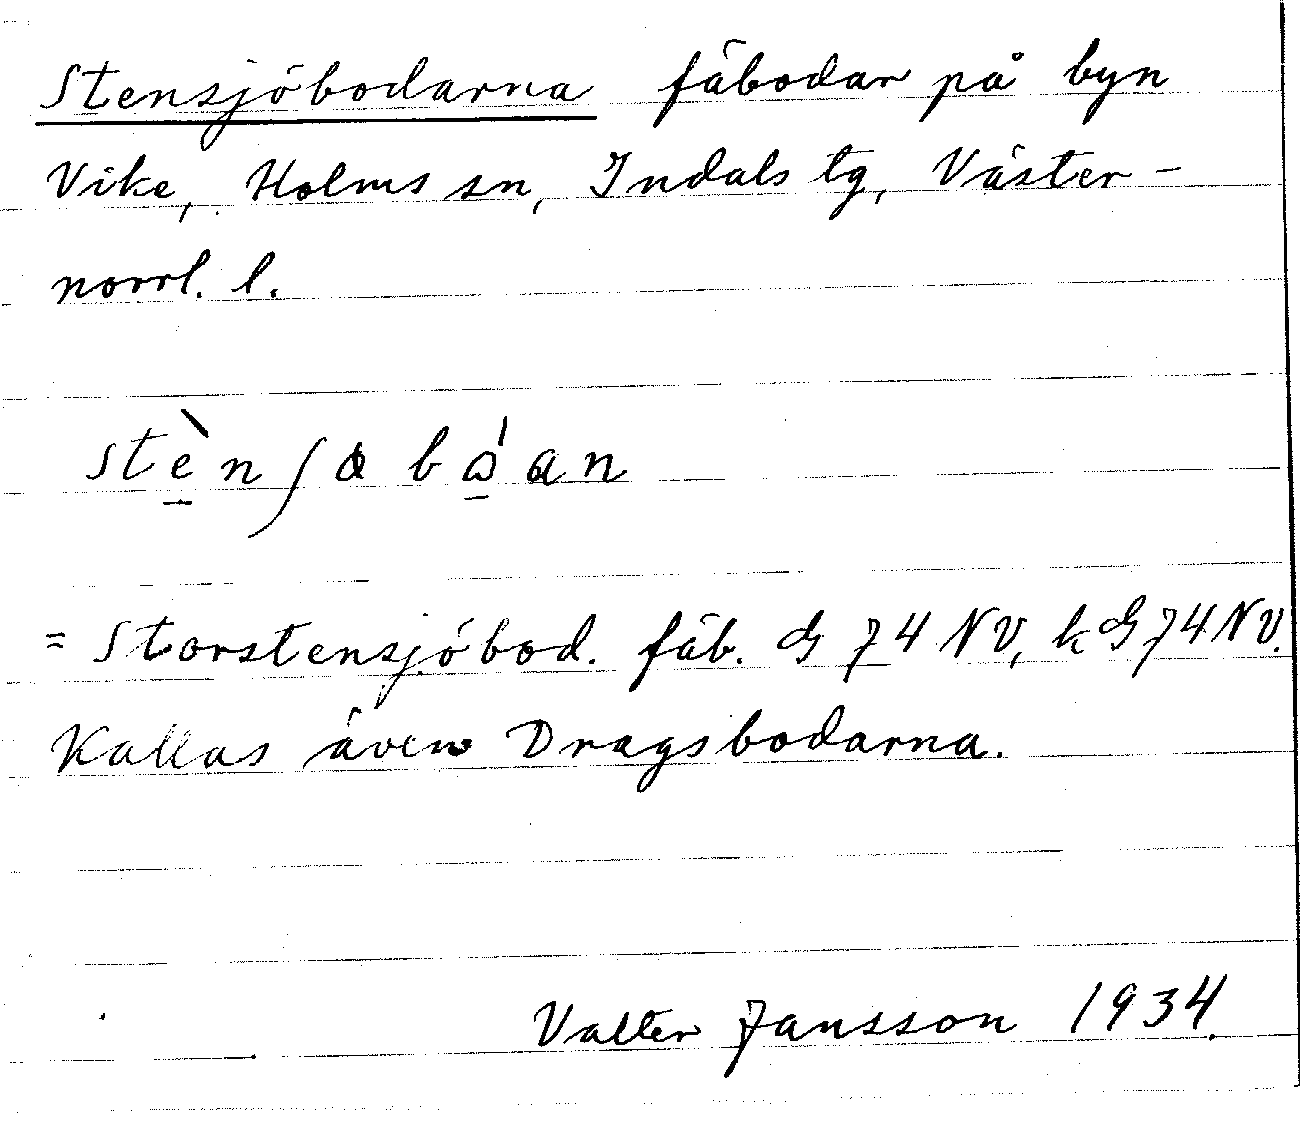 Stensjöbodarna fäbodar på byn
Vike, Holms sn, Indals tg, Väster-
norrl. l.
= Storstensjöbod. fäb. G 74 NV, k G 74 NV.
Kallas även Dragsbodarna.
Valter Jansson 1934.